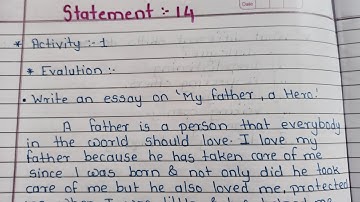 Statement :- 14
* Activity :- 1
* Evalution :-
• Write an essay on 'My father, a Hero.'
A father is a person that everybody
in the world should love. I love my
father because he has taken care of me
since I was born & not only did he took
care of me but he also loved me, protected